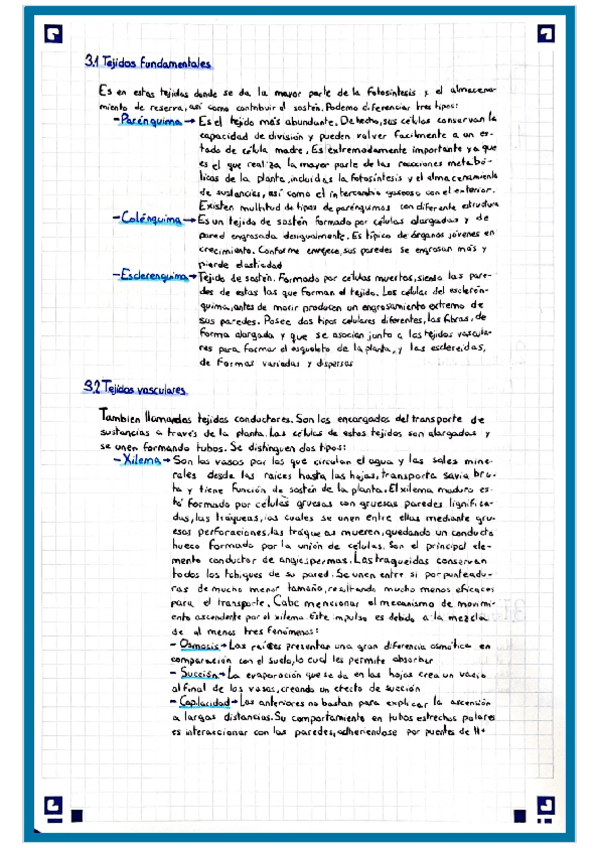 3.1 Tejidos Fundamentales
Es en estos tejidos donde se da la mayor parte de la fotosíntesis y el almacena-
miento de reserva, así como contribuir al sostén. Podemo diferenciar tres tipos:
- Parénquima → Es el tejido más abundante. De hecho, sus células conservan la
capacidad de división y pueden volver facilmente a un es-
tado de célula madre. Es extremadamente importante ya que
es el que realiza la mayor parte de las reacciones metabó-
licas de la planta, incluidas la fotosíntesis y el almacenamiento
de sustancias, así como el intercambio gaseoso con el exterior.
Existen multitud de tipos de parénquimas con diferente estructura
- Colénquima → Es un tejido de sostén formado por células alargadas y de
pared engrosada desigualmente. Es típico de órganos jóvenes en
crecimiento. Conforme envejece, sus paredes se engrosan más y
pierde elasticidad
- Esclerenquima → Tejido de sostén. Formado por células muertas, siendo las pare-
des de estas las que forman el tejido. Las células del esclerén-
quima, antes de morir producen un engrosamiento extremo de
sus paredes. Posee dos tipos celulares diferentes, las fibras, de
forma alargada y que se asocian junto a los tejidos vascula-
res para formar el esqueleto de la planta, y las esclereidas,
de formas variadas y dispersas
3.2 Tejidos vasculares
Tambien llamados tejidos conductores. Son los encargados del transporte de
sustancias a través de la planta. Las células de estos tejidos son alargadas y
se unen formando tubos. Se distinguen dos tipos:
- Xilema → Son los vasos por los que circulan el agua y las sales mine-
rales desde las raíces hasta las hojas, transporta savia bru-
ta y tiene función de sostén de la planta. El xilema maduro es-
tá formado por células gruesas con gruesas paredes lignifica-
das, las tráqueas, las cuales se unen entre ellas mediante gru-
esas perforaciones, las tráqueas mueren, quedando un conducto
hueco formado por la unión de células. Son el principal ele-
mento conductor de angiospermas. Las traqueidas conservan
todos los tabiques de su pared. Se unen entre si por punteadu-
ras de mucho menor tamaño, resultando mucho menos eficaces
para el transporte. Cabe mencionar el mecanismo de movimi-
ento ascendente por el xilema. Este impulso es debido a la mezcla
de al menos tres fenómenos:
- Osmosis → Las raíces presentan una gran diferencia osmótica en
comparación con el suelo, lo cual les permite absorber
- Succión → La evaporación que se da en las hojas crea un vacío
al final de los vasos, creando un efecto de succión
- Capilaridad → Las anteriores no bastan para explicar la ascensión
a largas distancias. Su comportamiento en tubos estrechos polares
es interaccionar con las paredes, adheriendose por puentes de H+